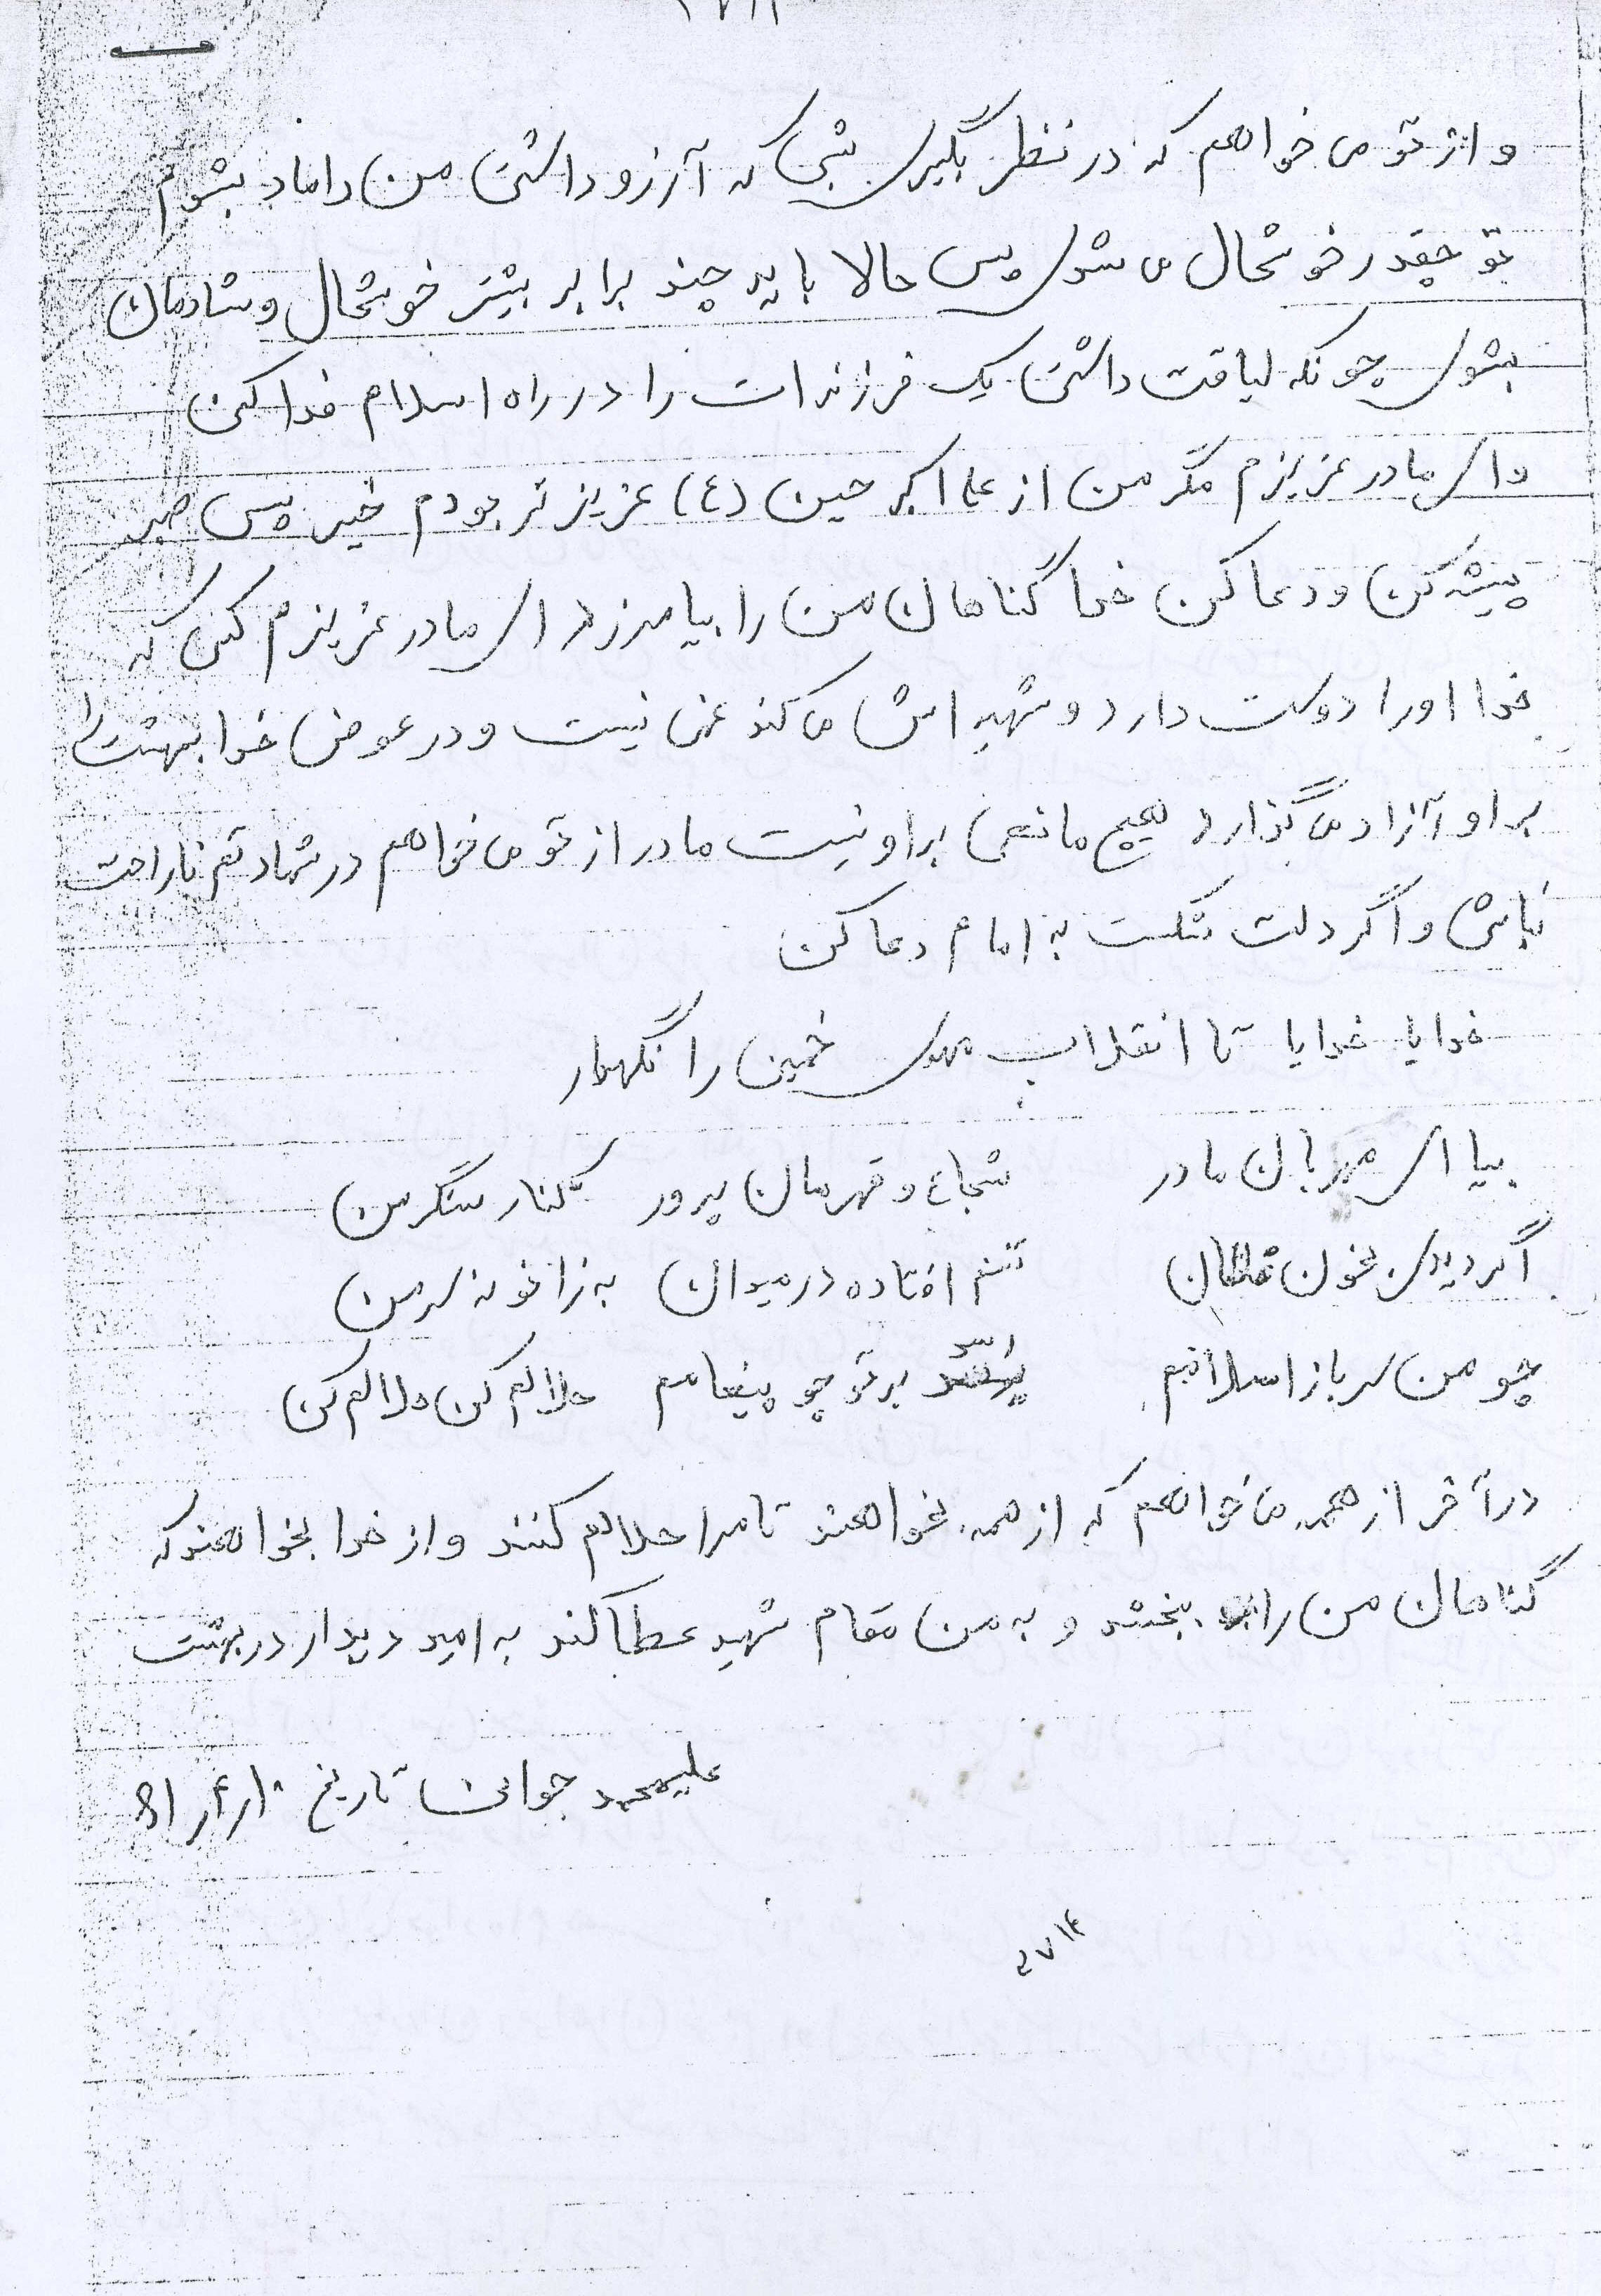 و از تو می خواهم که در نظر بگیری شبی که آرزو داشتی من داماد بشوم
تو چقدر خوشحال می شوی پس حالا باید چند برابر بیشتر خوشحال و شادمان
بشوی چونکه لیاقت داشتی یک فرزندات را در راه اسلام فدا کنی
و ای مادر عزیزم مگر من از علی اکبر حسین (ع) عزیزتر بودم خیر پس صبر
پیشه کن و دعا کن خدا گناهان من را بیامرزد ای مادر عزیزم کسی که
خدا او را دوست دارد و شهید اش می کند غمی نیست و در عوض خدا بهشت را
بر او آزاد می گذارد هیچ مانعی بر او نیست مادر از تو می خواهم در شهادتم ناراحت
نباش و اگر دلت شکست به امام دعا کن
خدایا خدایا تا انقلاب مهدی خمینی را نگهدار
بیا ای مهربان مادر شجاع و قهرمان پرور کنار سنگر من
اگر دیدی بخون غلطان تنم افتاده در میدان به زانو نه سر من
چو من سرباز اسلامم رسد بر تو چو پیغامم حلالم کن حلالم کن
در آخر از همه می خواهم که از همه بخواهند تا مرا حلالم کنند و از خدا بخواهند که
گناهان من را ببخشد و به من مقام شهید عطا کند به امید دیدار در بهشت
علیمحمد جوانی تاریخ